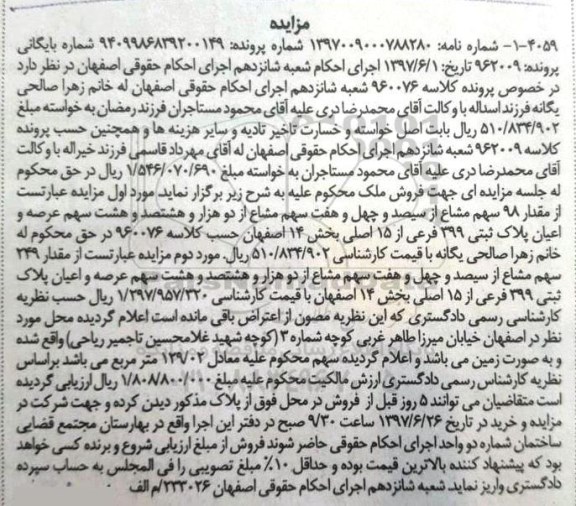 مزایده
۴۰۵۹-۱- شماره نامه: ۱۳۹۷۰۰۹۰۰۰۷۸۸۲۸۰ شماره پرونده: ۹۴۰۹۹۸۶۸۳۹۲۰۰۱۴۹ شماره بایگانی
پرونده: ۹۶۲۰۰۹ تاریخ: ۱۳۹۷/۶/۱ اجرای احکام شعبه شانزدهم اجرای احکام حقوقی اصفهان در نظر دارد
در خصوص پرونده کلاسه ۹۶۰۰۷۶ شعبه شانزدهم اجرای احکام حقوقی اصفهان له خانم زهرا صالحی
یگانه فرزند اسداله با وکالت آقای محمدرضا دری علیه آقای محمود مستاجران فرزند رمضان به خواسته مبلغ
۵۱۰/۸۳۴/۹۰۲ ریال بابت اصل خواسته و خسارت تاخیر تادیه و سایر هزینه ها و همچنین حسب پرونده
کلاسه ۹۶۲۰۰۹ شعبه شانزدهم اجرای احکام حقوقی اصفهان له آقای مهرداد قاسمی فرزند خیراله با وکالت
آقای محمدرضا دری علیه آقای محمود مستاجران به خواسته مبلغ ۱/۵۴۶/۰۷۰/۶۹۰ ریال در حق محکوم
له جلسه مزایده ای جهت فروش ملک محکوم علیه به شرح زیر برگزار نماید. مورد اول مزایده عبارتست
از مقدار ۹۸ سهم مشاع از سیصد و چهل و هفت سهم مشاع از دو هزار و هشتصد و هشت سهم عرصه و
اعیان پلاک ثبتی ۳۹۹ فرعی از ۱۵ اصلی بخش ۱۴ اصفهان حسب کلاسه ۹۶۰۰۷۶ در حق محکوم له
خانم زهرا صالحی یگانه با قیمت کارشناسی ۵۱۰/۸۳۴/۹۰۲ ریال. مورد دوم مزایده عبارتست از مقدار ۲۴۹
سهم مشاع از سیصد و چهل و هفت سهم مشاع از دو هزار و هشتصد و هشت سهم عرصه و اعیان پلاک
ثبتی ۳۹۹ فرعی از ۱۵ اصلی بخش ۱۴ اصفهان با قیمت کارشناسی ۱/۲۹۷/۹۵۷/۳۲۰ ریال حسب نظریه
کارشناسی رسمی دادگستری که این نظریه مصون از اعتراض باقی مانده است اعلام گردیده محل مورد
نظر در اصفهان خیابان میرزا طاهر غربی کوچه شماره ۳ (کوچه شهید غلامحسین تاجمیر ریاحی) واقع شده
و به صورت زمین می باشد و اعلام گردیده سهم محکوم علیه معادل ۱۲۹/۰۲ متر مربع می باشد براساس
نظریه کارشناس رسمی دادگستری ارزش مالکیت محکوم علیه مبلغ ۱/۸۰۸/۸۰۰/۰۰۰ ریال ارزیابی گردیده
است متقاضیان می توانند ۵ روز قبل از فروش در محل فوق از پلاک مذکور دیدن کرده و جهت شرکت در
مزایده و خرید در تاریخ ۱۳۹۷/۶/۲۶ ساعت ۹/۳۰ صبح در دفتر این اجرا واقع در بهارستان مجتمع قضایی
ساختمان شماره دو واحد اجرای احکام حقوقی حاضر شوند فروش از مبلغ ارزیابی شروع و برنده کسی خواهد
بود که پیشنهاد کننده بالاترین قیمت بوده و حداقل ۱۰٪ مبلغ تصویبی را فی المجلس به حساب سپرده
دادگستری واریز نماید. شعبه شانزدهم اجرای احکام حقوقی اصفهان ۲۳۳۰۲۶/م الف